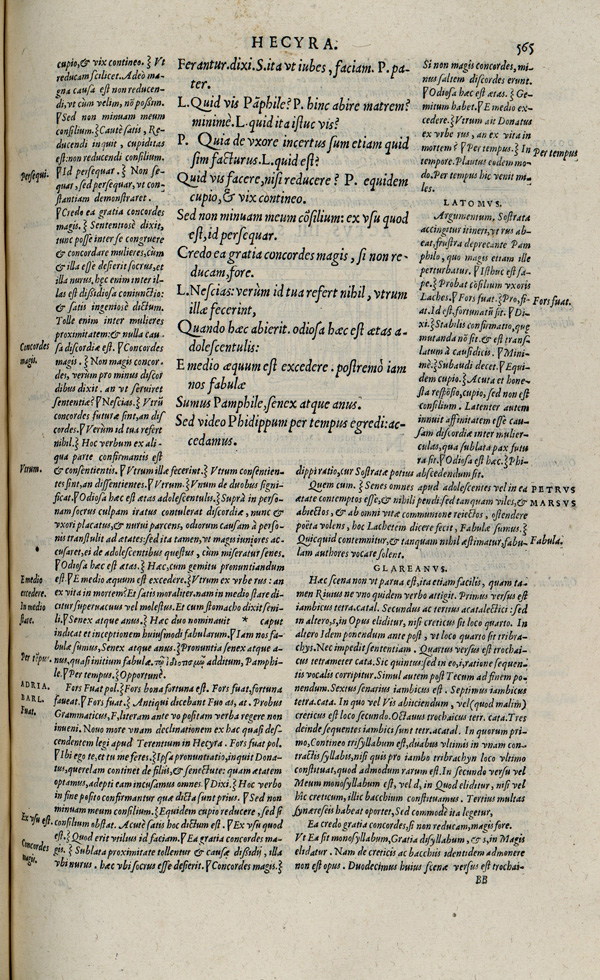 HECYRA.
565
Ferantur. dixi. S. ita vt iubes, faciam. P. pa-
ter.
L. Quid vis Pãphile? P. hinc abire matrem?
minimè. L. quid ita istuc vis?
P. Quia de vxore incertus sum etiam quid
sim facturus. L. quid est?
Quid vis facere, nisi reducere? P. equidem
cupio, & vix contineo.
Sed non minuam meum cõsilium: ex vsu quod
est, id persequar.
Credo ea gratia concordes magis, si non re-
ducam, fore.
L. Nescias: verùm id tua refert nihil, vtrum
illæ fecerint,
Quando hæc abierit. odiosa hæc est ætas a-
dolescentulis:
E medio æquum est excedere. postremò iam
nos fabulæ
Sumus Pamphile, senex atque anus.
Sed video Phidippum per tempus egredi: ac-
cedamus.
cupio, & vix contineo. ⁆ Vt
reducam scilicet. Adeò ma-
gna causa est non reducen-
di, vt cùm velim, nõ possim.
⁋Sed non minuam meum
consilium.⁆ Cautè satis, Re-
ducendi inquit, cupiditas
est: non reducendi consilium.
Persequi.
⁋Id persequar.⁆ Non se-
quar, sed persequar, vt con-
stantiam demonstraret.
⁋Credo ea gratia concordes
magis.⁆ Sententiosè dixit,
tunc posse inter se congruere
& concordare mulieres, cùm
& illa esse desierit socrus, et
illa nurus, hęc enim inter il-
las est dissidiosa coniunctio:
& satis ingeniosè dictum.
Tolle enim inter mulieres
proximitatem: & nulla cau-
sa discordiæ est. ⁋Concordes
Concordes
magis.
magis.⁆ Non magis concor-
des, verùm pro minus discor
dibus dixit. an vt seruiret
sententiæ? ⁋Nescias.⁆ Vtrũ
concordes futuræ sint, an dis
cordes. ⁋Verùm id tua refert
nihil.⁆ Hoc verbum ex ali-
qua parte confirmantis est
Vtrum.
& consentientis. ⁋Vtrum illæ fecerint.⁆ Vtrum consentien-
tes sint, an dissentientes. ⁋Vtrum.⁆ Vtrum de duobus signi-
ficat. ⁋Odiosa hæc est ætas adolescentulis.⁆ Suprà in perso-
nam socrus culpam iratus contulerat discordiæ, nunc &
vxori placatus, & nurui parcens, odiorum causam à perso-
nis transtulit ad ætates: sed ita tamen, vt magis iuniores ac-
cusaret, ei de adolescentibus questus, cùm miseratur senes.
⁋Odiosa hæc est ætas.⁆ Hæc, cum gemitu pronuntiandum
E medio
excedere.
In medio
stare.
est. ⁋E medio æquum est excedere.⁆ Vtrum ex vrbe rus: an
ex vita in mortem? Et satis moraliter. nam in medio stare di-
citur superuacuus vel molestus. Et cum stomacho dixit seni-
li. ⁋Senex atque anus.⁆ Hæc duo nominauit * caput
indicat et inceptionem huiusmodi fabularum. ⁋Iam nos fa-
bulæ sumus, Senex atque anus.⁆ Pronuntia senex atque a-
nus, quasi initium fabulæ. additum, Pamphi-
le. ⁋Per tempus.⁆ Opportunè.
ADRIA.
BARL.
Fuat.
Fors Fuat pol.⁆ Fors bona fortuna est. Fors fuat, fortuna
faueat. ⁋Fors fuat.⁆ Antiqui dicebant Fuo as, at. Probus
Grammaticus, F, literam ante vo positam verba regere non
inueni. Nouo more vnam declinationem ex hac quasi des-
cendentem legi apud Terentium in Hecyra. Fors fuat pol.
⁋Ibi ego te, et tu me feres.⁆ Ipsa pronuntiatio, inquit Dona-
tus, querelam continet de filiis, & senectute: quam ætatem
optamus, adepti eam incusamus omnes. ⁋Dixi.⁆ Hoc verbo
in fine posito confirmantur quæ dicta sunt prius. ⁋Sed non
minuam meum consilium.⁆ Equidem cupio reducere, sed si
Ex vsu est.
consilium obstat. Acutè satis hoc dictum est. ⁋Ex vsu quod
est.⁆ Quod erit vtilius id faciam. ⁋Ea gratia concordes ma-
Concordes
magis.
gis.⁆ Sublata proximitate tollentur & causæ dissidii, illa
vbi nurus. hæc vbi socrus esse desierit. ⁋Concordes magis.⁆
Si non magis concordes, mi-
nus saltem discordes erunt.
⁋Odiosa hæc est ætas.⁆ Ge-
mitum habet. ⁋E medio ex-
cedere.⁆ Vtrum ait Donatus
ex vrbe rus, an ex vita in
mortem? ⁋Per tempus.⁆ In
Per tempus
tempore. Plautus eodem mo-
do. Per tempus hîc venit mi-
les.
LATOMVS.
Argumentum, Sostrata
accingitur itineri, vt rus ab-
eat, frustra deprecante Pam
philo, quo magis etiam ille
perturbatur. ⁋Isthuc est sa-
pe.⁆ Probat cõsilium vxoris
Laches. ⁋Fors fuat.⁆ Pro, fi-
Fors fuat.
at. Id est, fortunatũ sit. ⁋Di-
xi.⁆ Stabilis confirmatio, quę
mutanda nõ sit. & est trans-
latum à causidicis. ⁋Mini-
mè.⁆ Subaudi decet. ⁋Equi-
dem cupio.⁆ Acuta et hone-
sta respõsio, cupio, sed non est
consilium. Latenter autem
innuit affinitatem esse cau-
sam discordiæ inter mulier-
culas, qua sublata pax futu
ra sit. ⁋Odiosa est hæc.⁆ Phi-
dippi ratio, cur Sostratæ potius abscedendum sit.
Quem cum.⁆ Senes omnes apud adolescentes vel in ea
PETRVS
ætate contemptos esse, & nihili pendi: sed tanquam viles, &
MARSVS
abiectos, & ab omni vitæ communione reiectos, ostendere
poëta volens, hoc Lachetem dicere fecit, Fabulæ sumus.⁆
Quicquid contemnitur, & tanquam nihil æstimatur, fabu-
Fabula.
lam authores vocare solent.
GLAREANVS.
Hæc scena non vt parua est, ita etiam facilis, quam ta-
men Riuius ne vno quidem verbo attigit. Primus versus est
iambicus tetra. catal. Secundus ac tertius acatalectici: sed
in altero, s, in Opus eliditur, nisi creticus sit loco quarto. In
altero Idem ponendum ante post, vt loco quarto sit tribra-
chys. Nec impedit sententiam. Quartus versus est trochai-
cus tetrameter cata. Sic quintus: sed in eo, i, ratione sequen-
tis vocalis corripitur. Simul autem post Tecum ad finem po-
nendum. Sextus senarius iambicus est. Septimus iambicus
tetra. cata. In quo vel Vis abiiciendum, vel (quod malim)
creticus est loco secundo. Octauus trochaicus tetr. cata. Tres
deinde sequentes iambici sunt tetr. acatal. In quorum pri-
mo, Contineo trisyllabum est, duabus vltimis in vnam con-
tractis syllabis, nisi quis pro iambo tribrachyn loco vltimo
constituat, quod admodum rarum est. In secundo versu vel
Meum monosyllabum est, vel d, in Quod eliditur, nisi vel
hîc creticum, illic bacchium constituamus. Tertius multas
synæreseis habeat oportet, Sed commodè ita legetur,
Ea credo gratia concordes, si non reducam, magis fore.
Vt Ea sit monosyllabum, Gratia disyllabum, & s, in Magis
elidatur. Nam de creticis ac bacchiis identidem admonere
non est opus. Duodecimus huius scenæ versus est trochai-
BB